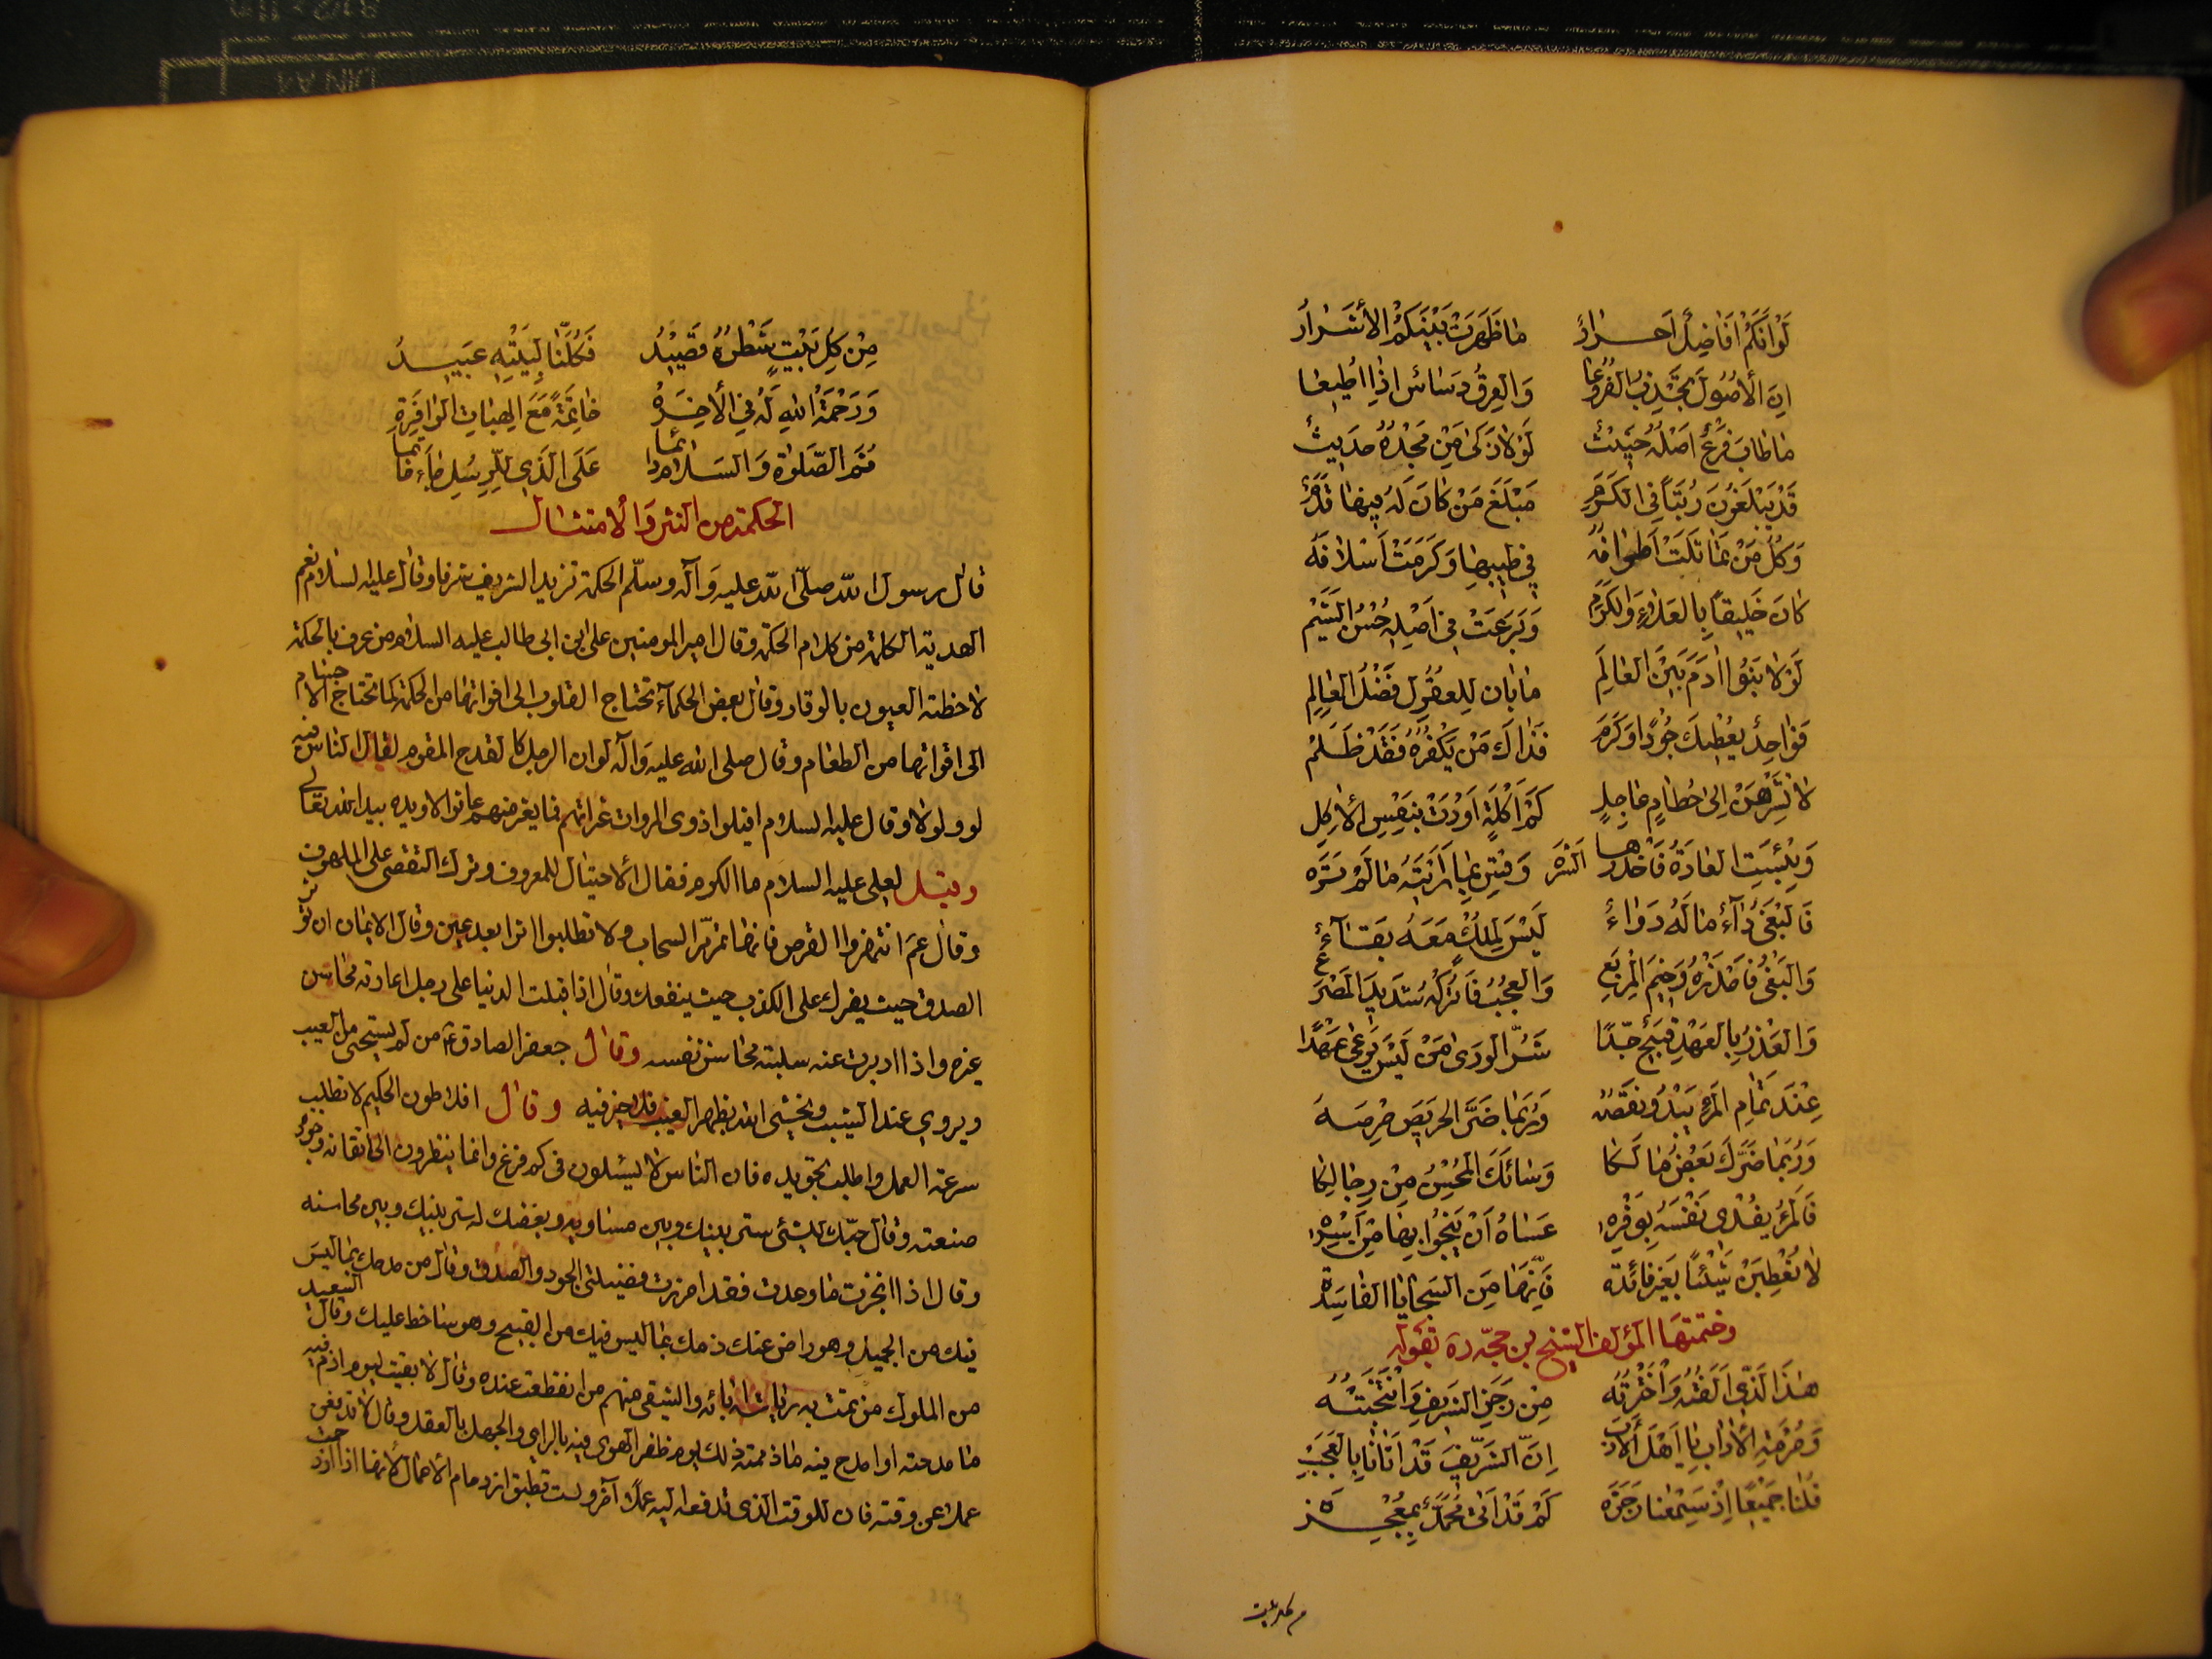 لَوْ اَنَّكُمْ اَفَاضِلٌ اَحْرَارُ مَا ظَهَرَتْ بَيْنَكُمُ الْأَشْرَارُ
اِنَّ الْأُصُولَ تَجْذِبُ الفُرُوعَا وَالعِرْقُ دَسَّاسٌ اِذَا اُطِيعَا
مَا طَابَ فَرْعٌ اَصْلُهُ خَبِيثٌ لَوْلَا ذَكَى مَنْ مَجْدُهُ حَدِيثٌ
قَدْ يَبْلُغُونَ رُتَبًا فِي الكَرَمِ مَبْلَغَ مَنْ كَانَ لَهُ فِيهَا قَدَمُ
وَكُلُّ مَنْ تَمَاثَلَتْ اَطْرَافُهُ فِي طِيبِهَا وَكَرُمَتْ اَسْلَافُهُ
كَانَ خَلِيقًا بِالعَلَاءِ وَالكَرَمِ وَبَرَعَتْ فِي اَصْلِهِ حُسْنُ الشِّيَمْ
لَوْلَا بَنُوا اٰدَمَ بَيْنَ العَالَمِ مَا بَانَ لِلعُقُولِ فَضْلُ العَالِمِ
فَوَاحِدٌ يُعْطِيكَ جُودًا وَكَرَمَ فَذَاكَ مَنْ يَكْفُرُهُ فَقَدْ ظَلَمْ
لَا تَشْرَهَنْ اِلٰى حُطَامٍ عَاجِلِ كَمْ اَكْلَةٍ اَوْدَتْ بِنَفْسِ الْأٰكِلِ
وَبِئْسَتِ العَادَةُ فَاحْذَرْهَا الشَّرَه
فَالبَغْيُ دَاءٌ مَا لَهُ دَوَاءُ لَيْسَ لِمُلْكٍ مَعَهُ بَقَاءُ
وَالبَغْيُ فَاحْذَرْهُ وَخِيمَ المَرْبَعِ وَالعُجْبُ فَاتْرُكْهُ شَدِيدَ المَصْرَعِ
وَالغَدْرُ بِالعَهْدِ قَبِيحٌ جِدًّا شَرُّ الوَرٰى مَنْ لَيْسَ يَرْعٰى عَهْدًا
عِنْدَ تَمَامِ المَرْءِ يَبْدُو نَقْصُهُ وَرُبَّمَا ضَرَّ الحَرِيصَ حِرْصُهُ
وَرُبَّمَا ضَرَّكَ بَعْضُ مَالِكَا وَسَائَكَ المُحْسِنُ مِنْ رِجَالِكَا
فَالمَرْءُ يَفْدِي نَفْسَهُ بِوَفْرِهِ عَسَاهُ اَنْ يَنْجُوَا بِهَا مِنْ اَسْرِهِ
لَا تُعْطِيَنْ شَيْئًا بِغَيْرِ فَائِدَة فَاِنَّهَا مِنَ السَّجَايَا الفَاسِدَةِ
وختمتها المؤلف الشيخ بن حجّه ره بقوله
هٰذَا الَّذِي اَلَّفْتُهُ وَاخْتَرْتُهُ مِنْ رَجَزِ الشَّرِيفِ وَانْتَخَبْتُهُ
وَحُرْمَةِ الْأٰدَابِ يَا اَهْلَ الأَدَبْ اِنَّ الشَّرِيفَ قَدْ اَتَانَا بِالعَجَبْ
قُلْنَا جَمِيعًا اِذْ سَمِعْنَا رَجَزَه كَمْ قَدْ اَتٰى مُحَمَّدٌ بِمُعْجِزَه
من كل بيت
مِنْ كُلِّ بَيْتٍ شَطْرُهُ قَصِيدُ فَكُلُّنَا لِبَيْتِهِ عَبِيدُ
وَرَحْمَةُ اللهِ لَهُ فِي الْأٰخِرَهْ خَاتِمَةً مَعَ الهِبَاتِ الوَافِرَةِ
ثُمَّ الصَّلوٰة وَالسَّلَامُ دَائِمًا عَلَى الَّذِي لِلرُّسُلِ جَاءَ خَاتِمًا
الحكمة من النثر وَالأمثال
قال رسول اللّه صلّى اللّه عليه وَآله وسلّم الحكمة تزيد الشريف شرفا وقال عليه لسلام نعم
الهدية الكلمة من كلام الحكمة وقال امير المومنين على ابن ابى طالب عليه السلام من عرف بالحكمة
لاحظته العيون بالوقار وقال بعض الحكمآء تحتاج القلوب الى اقواتها من الحكمة كما تحتاج الاجسام
الى اقواتها من الطعام وقال صلى الله عليه وَآله لو ان الرجل كالقدح المقوم لقال الناس فيه
لو ولولا وقال عليه السلام اقيلوا ذوى المروات عثراتهم فما يعثر منهم عاثر الا ويده بيد الله تعالى
وقيل لعلى عليه السلام ما الكرم فقال الأحتيال للمعروف وترك التقصى على الملهوف
وقال عم انتهزوا الفرص فانها تمرّ مرّ السحاب ولا تطلبوا اثرا بعد عين وقال الايمان ان تؤثر
الصدق حيث يضرك على الكذب حيث ينفعك وقال اذا اقبلت الدنيا على رجل اعارته محاسن
غيره واذا ادبرت عنه سلبته محاسن نفسه وقال جعفر الصادق ع من لم يستحى من العيب
ويروي عند الشيب ويخشى الله بظهر الغيب فلا خير فيه وقال افلاطون الحكيم لا تطلب
سرعة العمل واطلب تجويده فان الناس لا يسئلون في كم فرغ وانما ينظرون الى اتقانه وجودة
صنعته وقال حبّك للشئ ستر بينك وبين مساويه وبغضك له ستر بينك وبين محاسنه
وقال اذا انجزت ما وعدت فقد احرزت فضيلتى الجود والصدق وقال من مدحك بما ليس
فيك من الجميل وهو راض عنك ذمك بما ليس فيك من القبيح وهو ساخط عليك وقال السعيد
من الملوك من تمت به رياسة آبائه والشقى منهم من انقطعت عنده وقال لا بقيت ليوم اذم فيه
ما مدحته او امدح فيه ما ذممته ذلك يوم ظفر الهوى فيه بالراي والجهل بالعقل وقال لا تدفعن
عملا عن وقته فان للوقت الذي تدفعه اليه عملا آخر ولست تطيق ازدحام الأعمال لأنها اذا ازدحمت